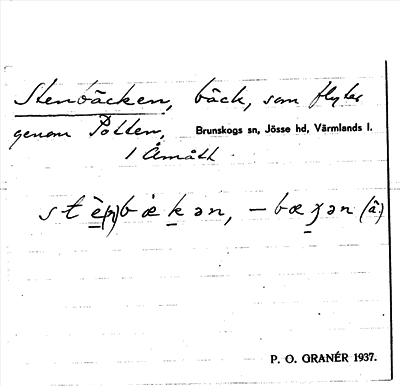 Stenbäcken, bäck, som flyter
genom Potten, Brunskogs sn, Jösse hd, Värmlands l.
1 Åmått.
st è(n)b æ k ən, – bæ ʒ ən (â.)
P. O. GRANÉR 1937.